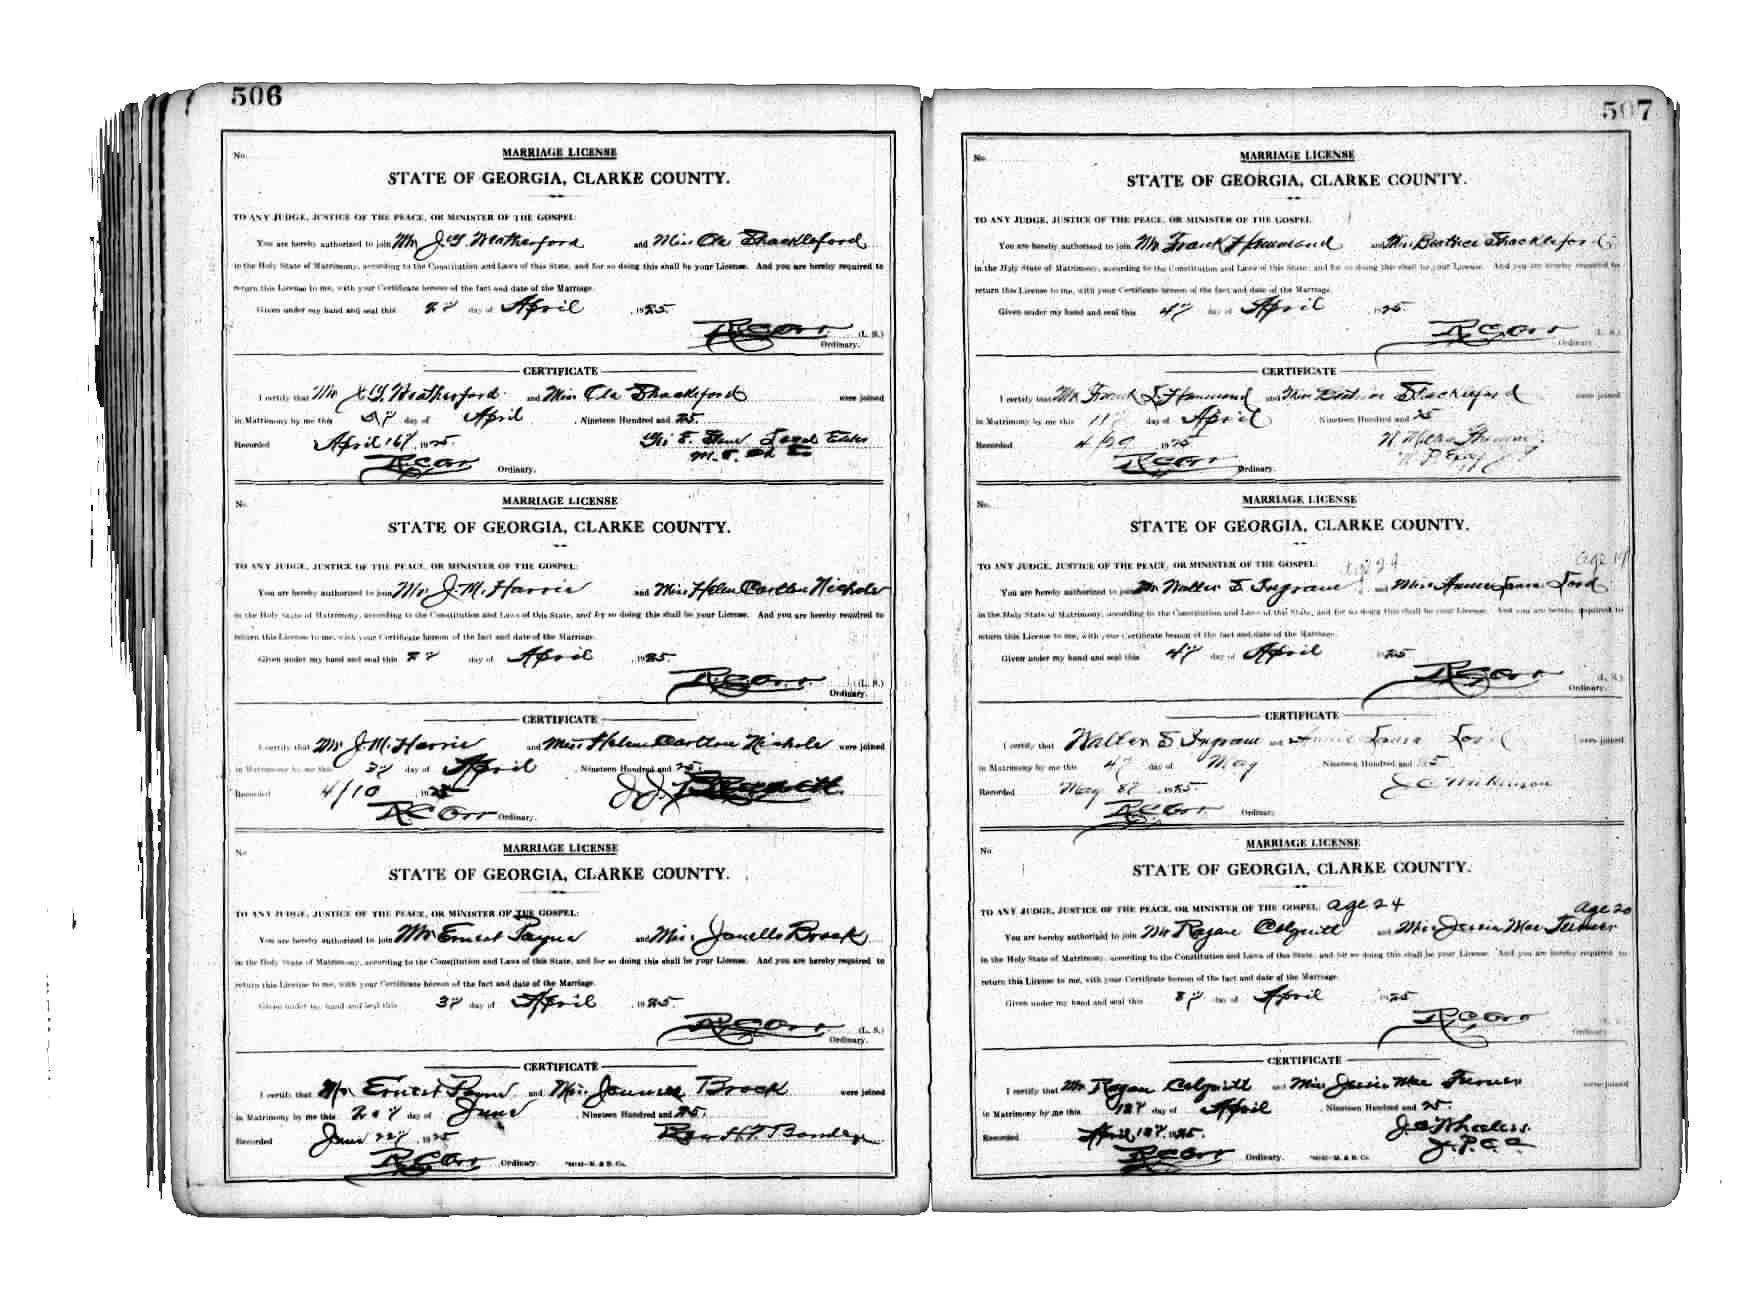 506
No.
MARRIAGE LICENSE
STATE OF GEORGIA, CLARKE COUNTY.
TO ANY JUDGE, JUSTICE OF THE PEACE, OR MINISTER OF THE GOSPEL:
You are hereby authorized to join Mr J.Y. Weatherford and Miss Ola Shackleford
in the Holy State of Matrimony, according to the Constitution and Laws of this State, and for so doing this shall be your License. And you are hereby required to
return this License to me, with your Certificate hereon of the fact and date of the Marriage.
Given under my hand and seal this day of April, 1925.
R.C. Orr (L. S.)
Ordinary.
CERTIFICATE
I certify that Mr J.Y. Weatherford and Miss Ola Shackleford were joined
in Matrimony by me this day of April, Nineteen Hundred and 25.
Recorded April 16, 1925.
R.C. Orr Ordinary.
No.
MARRIAGE LICENSE
STATE OF GEORGIA, CLARKE COUNTY.
TO ANY JUDGE, JUSTICE OF THE PEACE, OR MINISTER OF THE GOSPEL:
You are hereby authorized to join Mr. J.M. Harris and Miss Helen Carlton Nichols
in the Holy State of Matrimony, according to the Constitution and Laws of this State, and for so doing this shall be your License. And you are hereby required to
return this License to me, with your Certificate hereon of the fact and date of the Marriage.
Given under my hand and seal this day of April, 1925.
R.C. Orr (L. S.)
Ordinary.
CERTIFICATE
I certify that Mr. J.M. Harris and Miss Helen Carlton Nichols were joined
in Matrimony by me this 3" day of April, Nineteen Hundred and 25.
Recorded 4/10, 1925
R.C. Orr Ordinary.
No.
MARRIAGE LICENSE
STATE OF GEORGIA, CLARKE COUNTY.
TO ANY JUDGE, JUSTICE OF THE PEACE, OR MINISTER OF THE GOSPEL:
You are hereby authorized to join Mr Ernest Payne and Miss Janelle Brock
in the Holy State of Matrimony, according to the Constitution and Laws of this State, and for so doing this shall be your License. And you are hereby required to
return this License to me, with your Certificate hereon of the fact and date of the Marriage.
Given under my hand and seal this 3" day of April, 1925
R.C. Orr (L. S.)
Ordinary.
CERTIFICATE
I certify that Mr Ernest Payne and Miss Brock were joined
in Matrimony by me this 20" day of June, Nineteen Hundred and 25.
Recorded June 22", 1925
R.C. Orr Ordinary.
507
No.
MARRIAGE LICENSE
STATE OF GEORGIA, CLARKE COUNTY.
TO ANY JUDGE, JUSTICE OF THE PEACE, OR MINISTER OF THE GOSPEL:
You are hereby authorized to join Mr Frank Hammond and Miss Beatrice Shackleford
in the Holy State of Matrimony, according to the Constitution and Laws of this State, and for so doing this shall be your License. And you are hereby required to
return this License to me, with your Certificate hereon of the fact and date of the Marriage.
Given under my hand and seal this 4" day of April 1925
R.C. Orr (L. S.)
Ordinary.
CERTIFICATE
I certify that Mr Frank Hammond and Miss Shackleford were joined
in Matrimony by me this 11" day of April Nineteen Hundred and 25
Recorded 1925
R.C. Orr Ordinary.
No.
MARRIAGE LICENSE
STATE OF GEORGIA, CLARKE COUNTY.
age 24 age 19
TO ANY JUDGE, JUSTICE OF THE PEACE, OR MINISTER OF THE GOSPEL:
You are hereby authorized to join Mr Walter S Ingram and Miss Annie Laura Lord
in the Holy State of Matrimony, according to the Constitution and Laws of this State, and for so doing this shall be your License. And you are hereby required to
return this License to me, with your Certificate hereon of the fact and date of the Marriage.
Given under my hand and seal this 4" day of April 1925
R.C. Orr (L. S.)
Ordinary.
CERTIFICATE
I certify that Walter S Ingram and Annie Laura Lord were joined
in Matrimony by me this 4" day of May Nineteen Hundred and 25
Recorded May 8" 1925. J.C. Wilkinson
R.C. Orr Ordinary.
No.
MARRIAGE LICENSE
STATE OF GEORGIA, CLARKE COUNTY.
TO ANY JUDGE, JUSTICE OF THE PEACE, OR MINISTER OF THE GOSPEL: age 24 age 20
You are hereby authorized to join Mr Ragan Colquitt and Miss Jessie Mae Turner
in the Holy State of Matrimony, according to the Constitution and Laws of this State, and for so doing this shall be your License. And you are hereby required to
return this License to me, with your Certificate hereon of the fact and date of the Marriage.
Given under my hand and seal this 8" day of April 1925
R.C. Orr
Ordinary.
CERTIFICATE
I certify that Mr Ragan Colquitt and Miss Jessie Mae Turner were joined
in Matrimony by me this 12" day of April, Nineteen Hundred and 25.
Recorded April 18", 1925. J.C. Wheeless.
J.P.C.C.
R.C. Orr Ordinary.